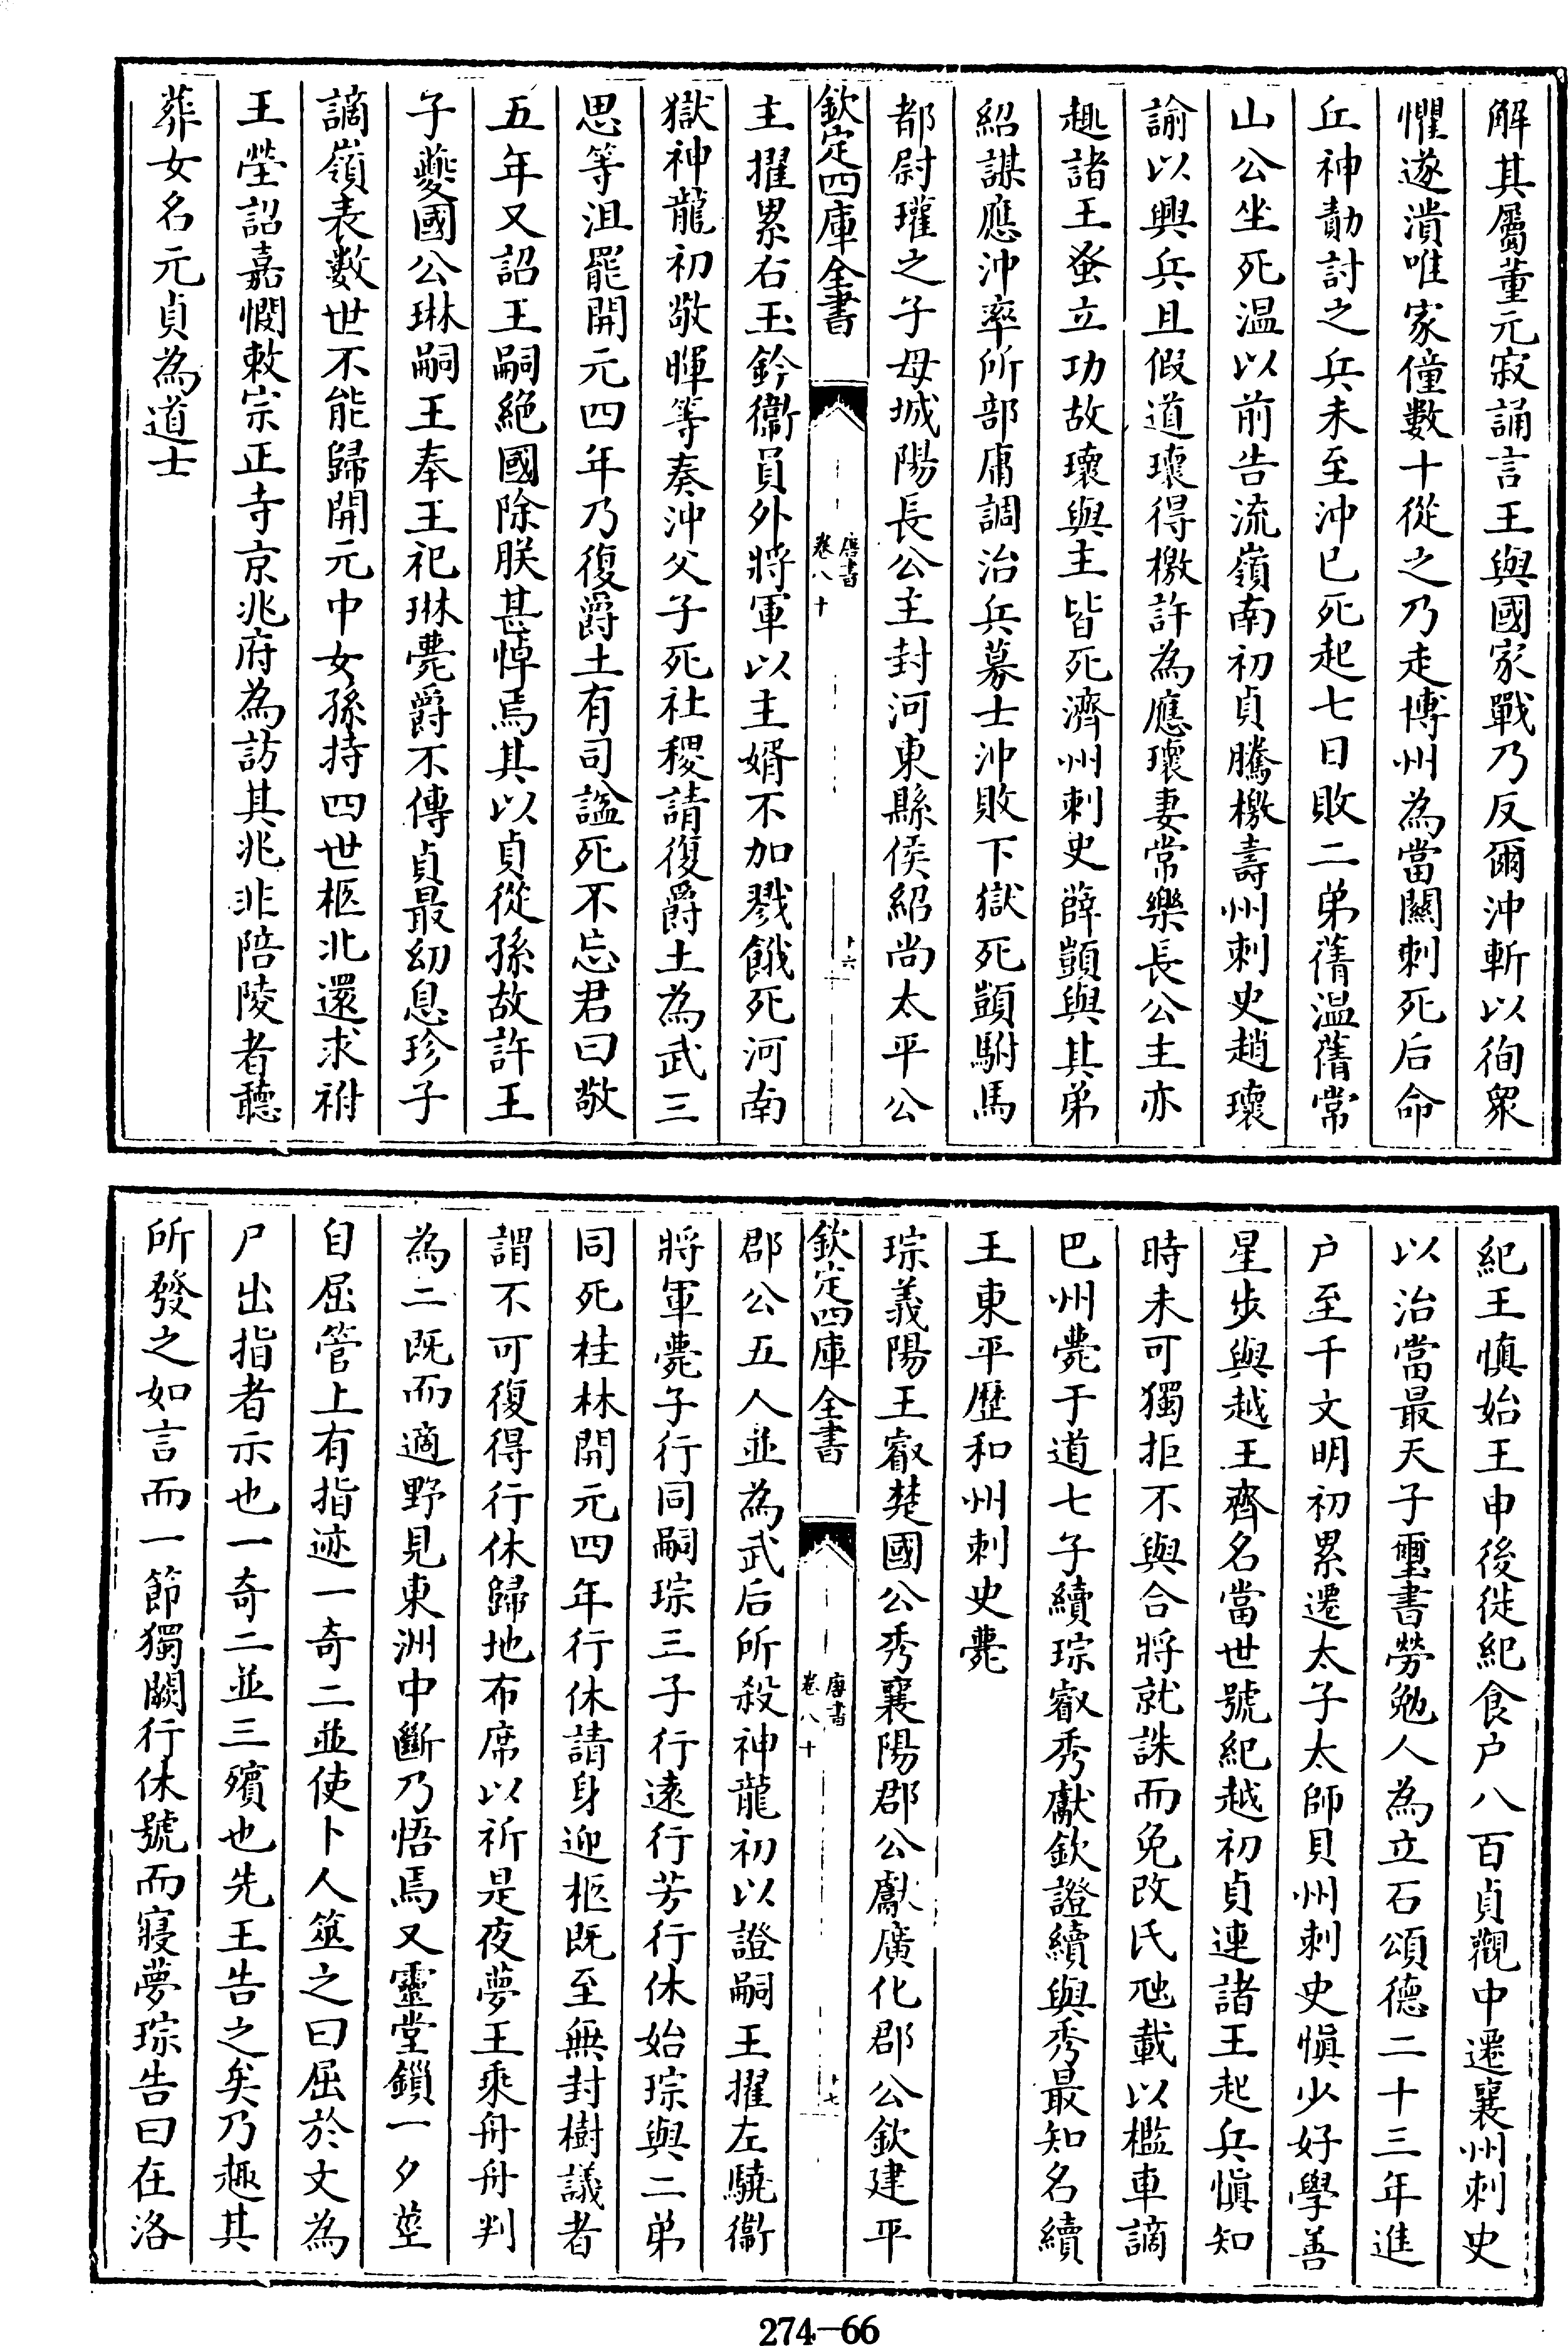 解其屬董元寂誦言王與國家戰乃反爾沖斬以徇眾
懼遂潰唯家僮數十從之乃走博州為當關刺死后命
丘神勣討之兵未至沖已死起七日敗二弟蒨温蒨常
山公坐死温以前告流嶺南初貞騰檄壽州刺史趙瓌
諭以興兵且假道瓌得檄許為應瓌妻常樂長公主亦
趣諸王蚤立功故瓌與主皆死濟州刺史薛顗與其弟
紹謀應沖率所部庸調治兵募士沖敗下獄死顗駙馬
都尉瓘之子母城陽長公主封河東縣侯紹尚太平公
欽定四庫全書
唐書
卷八十
十六
主擢累右玉鈐衞員外將軍以主婿不加戮餓死河南
獄神龍初敬暉等奏沖父子死社稷請復爵土為武三
思等沮罷開元四年乃復爵土有司諡死不忘君曰敬
五年又詔王嗣絶國除朕甚悼焉其以貞從孫故許王
子夔國公琳嗣王奉王祀琳薨爵不傳貞最幼息珍子
謫嶺表數世不能歸開元中女孫持四世柩北還求祔
王塋詔嘉憫敕宗正寺京兆府為訪其兆非陪陵者聽
葬女名元貞為道士
紀王慎始王申後徙紀食户八百貞觀中遷襄州刺史
以治當最天子璽書勞勉人為立石頌德二十三年進
户至千文明初累遷太子太師貝州刺史慎少好學善
星步與越王齊名當世號紀越初貞連諸王起兵慎知
時未可獨拒不與合將就誅而免改氏虺載以檻車謫
巴州薨于道七子續琮叡秀獻欽證續與秀最知名續
王東平歷和州刺史薨
琮義陽王叡楚國公秀襄陽郡公獻廣化郡公欽建平
欽定四庫全書
唐書
卷八十
十七
郡公五人並為武后所殺神龍初以證嗣王擢左驍衞
將軍薨子行同嗣琮三子行遠行芳行休始琮與二弟
同死桂林開元四年行休請身迎柩既至無封樹議者
謂不可復得行休歸地布席以祈是夜夢王乘舟舟判
為二既而適野見東洲中斷乃悟焉又靈堂鏁一夕莖
自屈管上有指迹一奇二並使卜人筮之曰屈於文為
尸出指者示也一奇二並三殯也先王告之矣乃趣其
所發之如言而一節獨闕行休號而寢夢琮告曰在洛
274-66